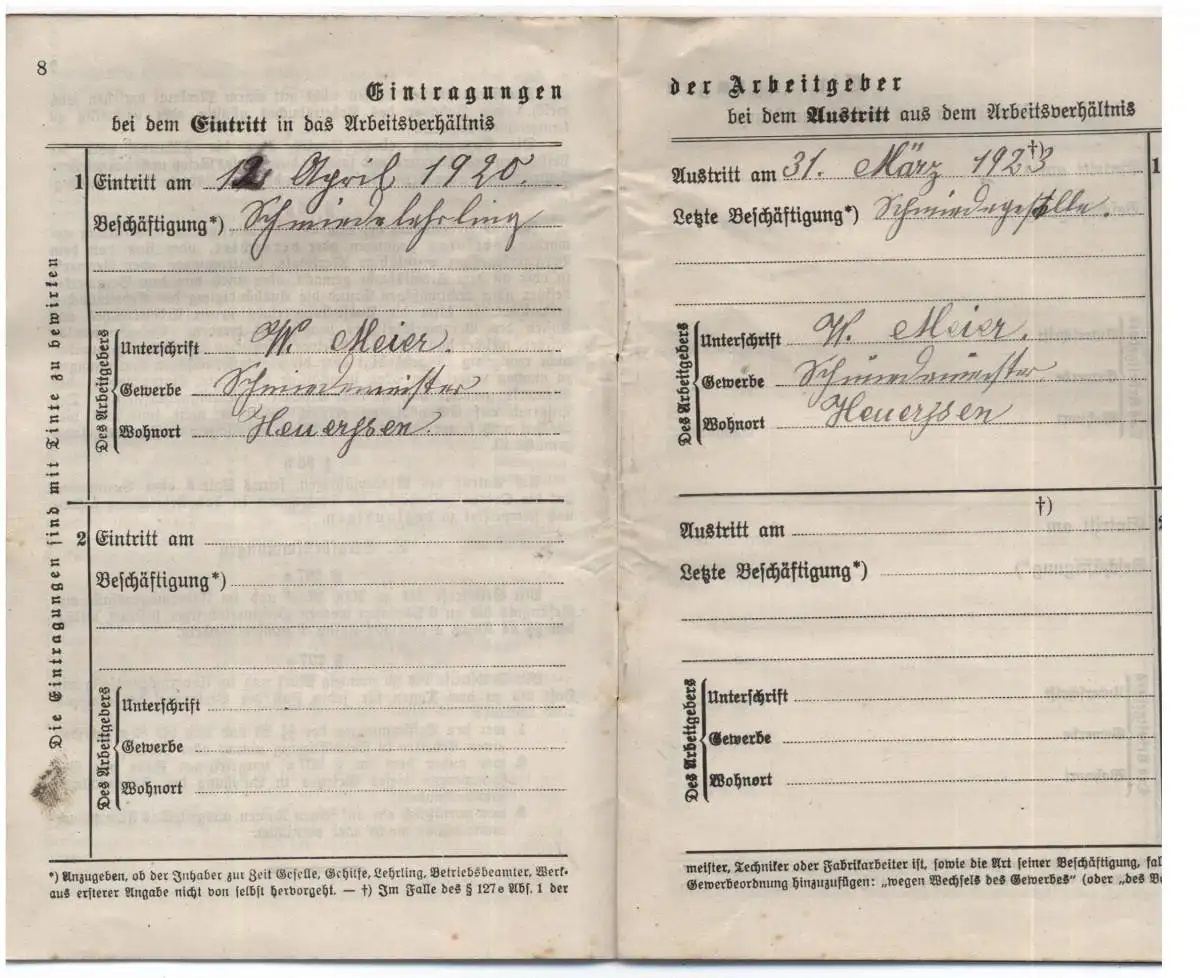 8
Eintragungen
bei dem Eintritt in das Arbeitsverhältnis
Die Eintragungen sind mit Tinte zu bewirken
1 Eintritt am 12. April 1920.
Beschäftigung*) Schmiedelehrling
Des Arbeitgebers
Unterschrift W. Meier.
Gewerbe Schmiedemeister
Wohnort Heuerssen.
2 Eintritt am
Beschäftigung*)
Des Arbeitgebers
Unterschrift
Gewerbe
Wohnort
*) Anzugeben, ob der Inhaber zur Zeit Geselle, Gehilfe, Lehrling, Betriebsbeamter, Werk-
aus ersterer Angabe nicht von selbst hervorgeht. — †) Im Falle des § 127e Abs. 1 der
der Arbeitgeber
bei dem Austritt aus dem Arbeitsverhältnis
1
†)
Austritt am 31. März 1923
Letzte Beschäftigung*) Schmiedegeselle.
Des Arbeitgebers
Unterschrift W. Meier.
Gewerbe Schmiedemeister
Wohnort Heuerssen
†)
Austritt am
Letzte Beschäftigung*)
Des Arbeitgebers
Unterschrift
Gewerbe
Wohnort
meister, Techniker oder Fabrikarbeiter ist, sowie die Art seiner Beschäftigung, fal
Gewerbeordnung hinzuzufügen: „wegen Wechsels des Gewerbes" (oder „des B